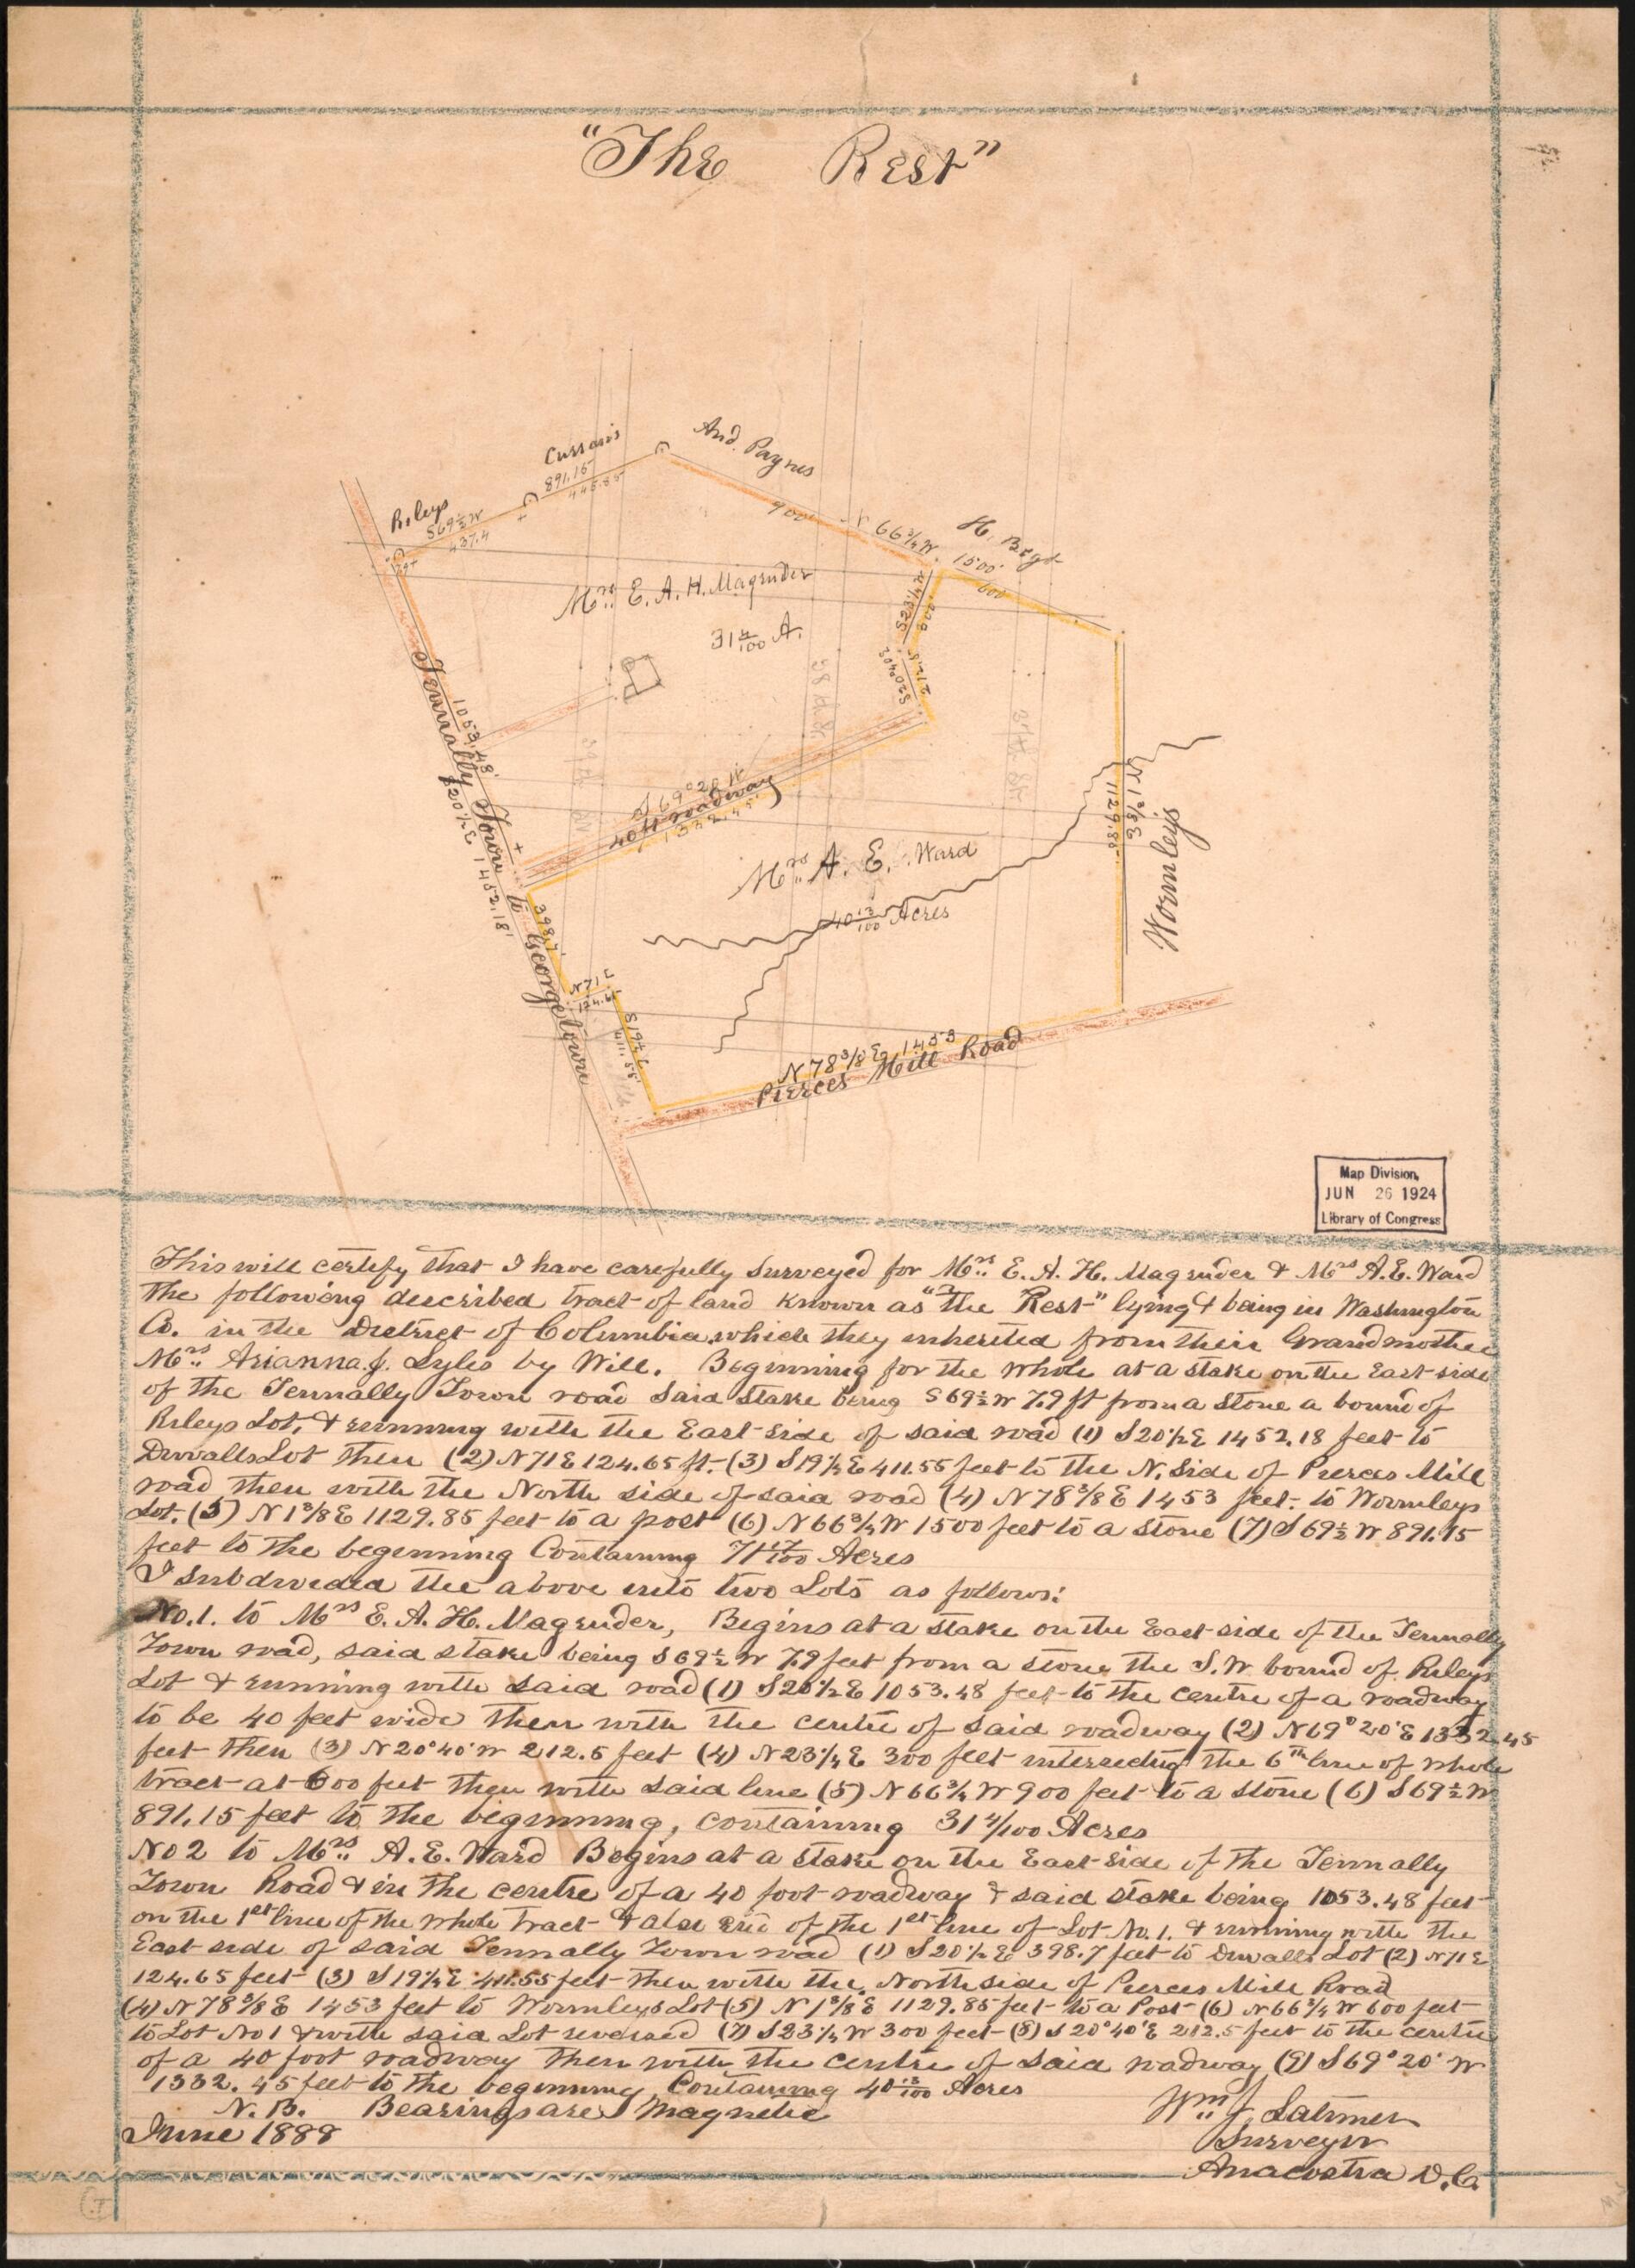 "The Rest"
And. Paynes
Cussons
891.15
445.85
Rileys
S69½W
437.4
7.9+
900'
N 66¾ W.
H. Bergt
1500'
600'
Mrs. E. A. H. Magruder
31 4/100 A.
S23¼W
300'
S20°40'E
212.5'
38 H.S.
Tennally Town to Georgetown
1053.48'
S20½E 1452.18'
S 69°20' W
40 ft roadway
1332.45'
Mrs. A. E. Ward
40 13/100 Acres
N 1⅜ E
1129.85
Wormleys
398.7'
N 71 E
124.65
S19¼E
411.55'
N 78⅜ E 1453
Pierces Mill Road
Map Division,
JUN 26 1924
Library of Congress
This will certify that I have carefully surveyed for Mrs. E. A. H. Magruder & Mrs A. E. Ward
The following described tract of land known as "The Rest" lying & being in Washington
Co. in the District of Columbia which they inherited from their Grandmother
Mrs. Arianna J. Lyles by Will. Beginning for the whole at a stake on the East side
of the Tennally Town road said stake being S 69½ W 7.9 ft from a stone a bound of
Rileys Lot, & running with the East side of said road (1) S 20½ E 1452.18 feet to
Duvalls Lot then (2) N 71 E 124.65 ft. (3) S 19¼ E 411.55 feet to the N. side of Pierces Mill
road then with the North side of said road (4) N 78⅜ E 1453 feet to Wormleys
Lot. (5) N 1⅜ E 1129.85 feet to a post (6) N 66¾ W 1500 feet to a stone (7) S 69½ W 891.15
feet to the beginning Containing 71 17/100 Acres
I subdivided the above into two Lots as follows:
No. 1. to Mrs E. A. H. Magruder, Begins at a stake on the East side of the Tennally
Town road, said stake being S 69½ W 7.9 feet from a stone the S.W bound of Rileys
Lot & running with said road (1) S 20½ E 1053.48 feet to the centre of a roadway
to be 40 feet wide then with the centre of said roadway (2) N 69° 20' E 1332.45
feet then (3) N 20° 40' W 212.5 feet (4) N 23¼ E 300 feet intersecting the 6th line of whole
tract at 600 feet then with said line (5) N 66¾ W 900 feet to a stone (6) S 69½ W
891.15 feet to the beginning, containing 31 4/100 Acres
No 2 to Mrs. A. E. Ward Begins at a stake on the East side of the Tennally
Town Road & in the centre of a 40 foot roadway & said stake being 1053.48 feet
on the 1st line of the whole tract & also end of the 1st line of Lot No. 1. & running with the
East side of said Tennally Town road (1) S 20½ E 398.7 feet to Duvalls Lot (2) N 71 E
124.65 feet (3) S 19¼ E 411.55 feet then with the North side of Pierces Mill Road
(4) N 78⅜ E 1453 feet to Wormleys Lot (5) N 1⅜ E 1129.85 feet to a Post (6) N 66¾ W 600 feet
to Lot No 1 & with said Lot reversed (7) S 23¼ W 300 feet (8) S 20° 40' E 212.5 feet to the centre
of a 40 foot roadway then with the centre of said roadway (9) S 69° 20' W
1332.45 feet to the beginning, Containing 40 13/100 Acres
N. B. Bearings are Magnetic
June 1888
Wm. J. Latimer
Surveyor
Anacostia D.C.